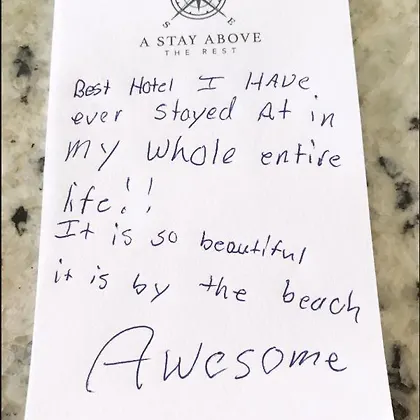 S E
A STAY ABOVE
THE REST
Best Hotel I HAVE
ever stayed At in
my whole entire
life!!
It is so beautiful
it is by the beach
Awesome